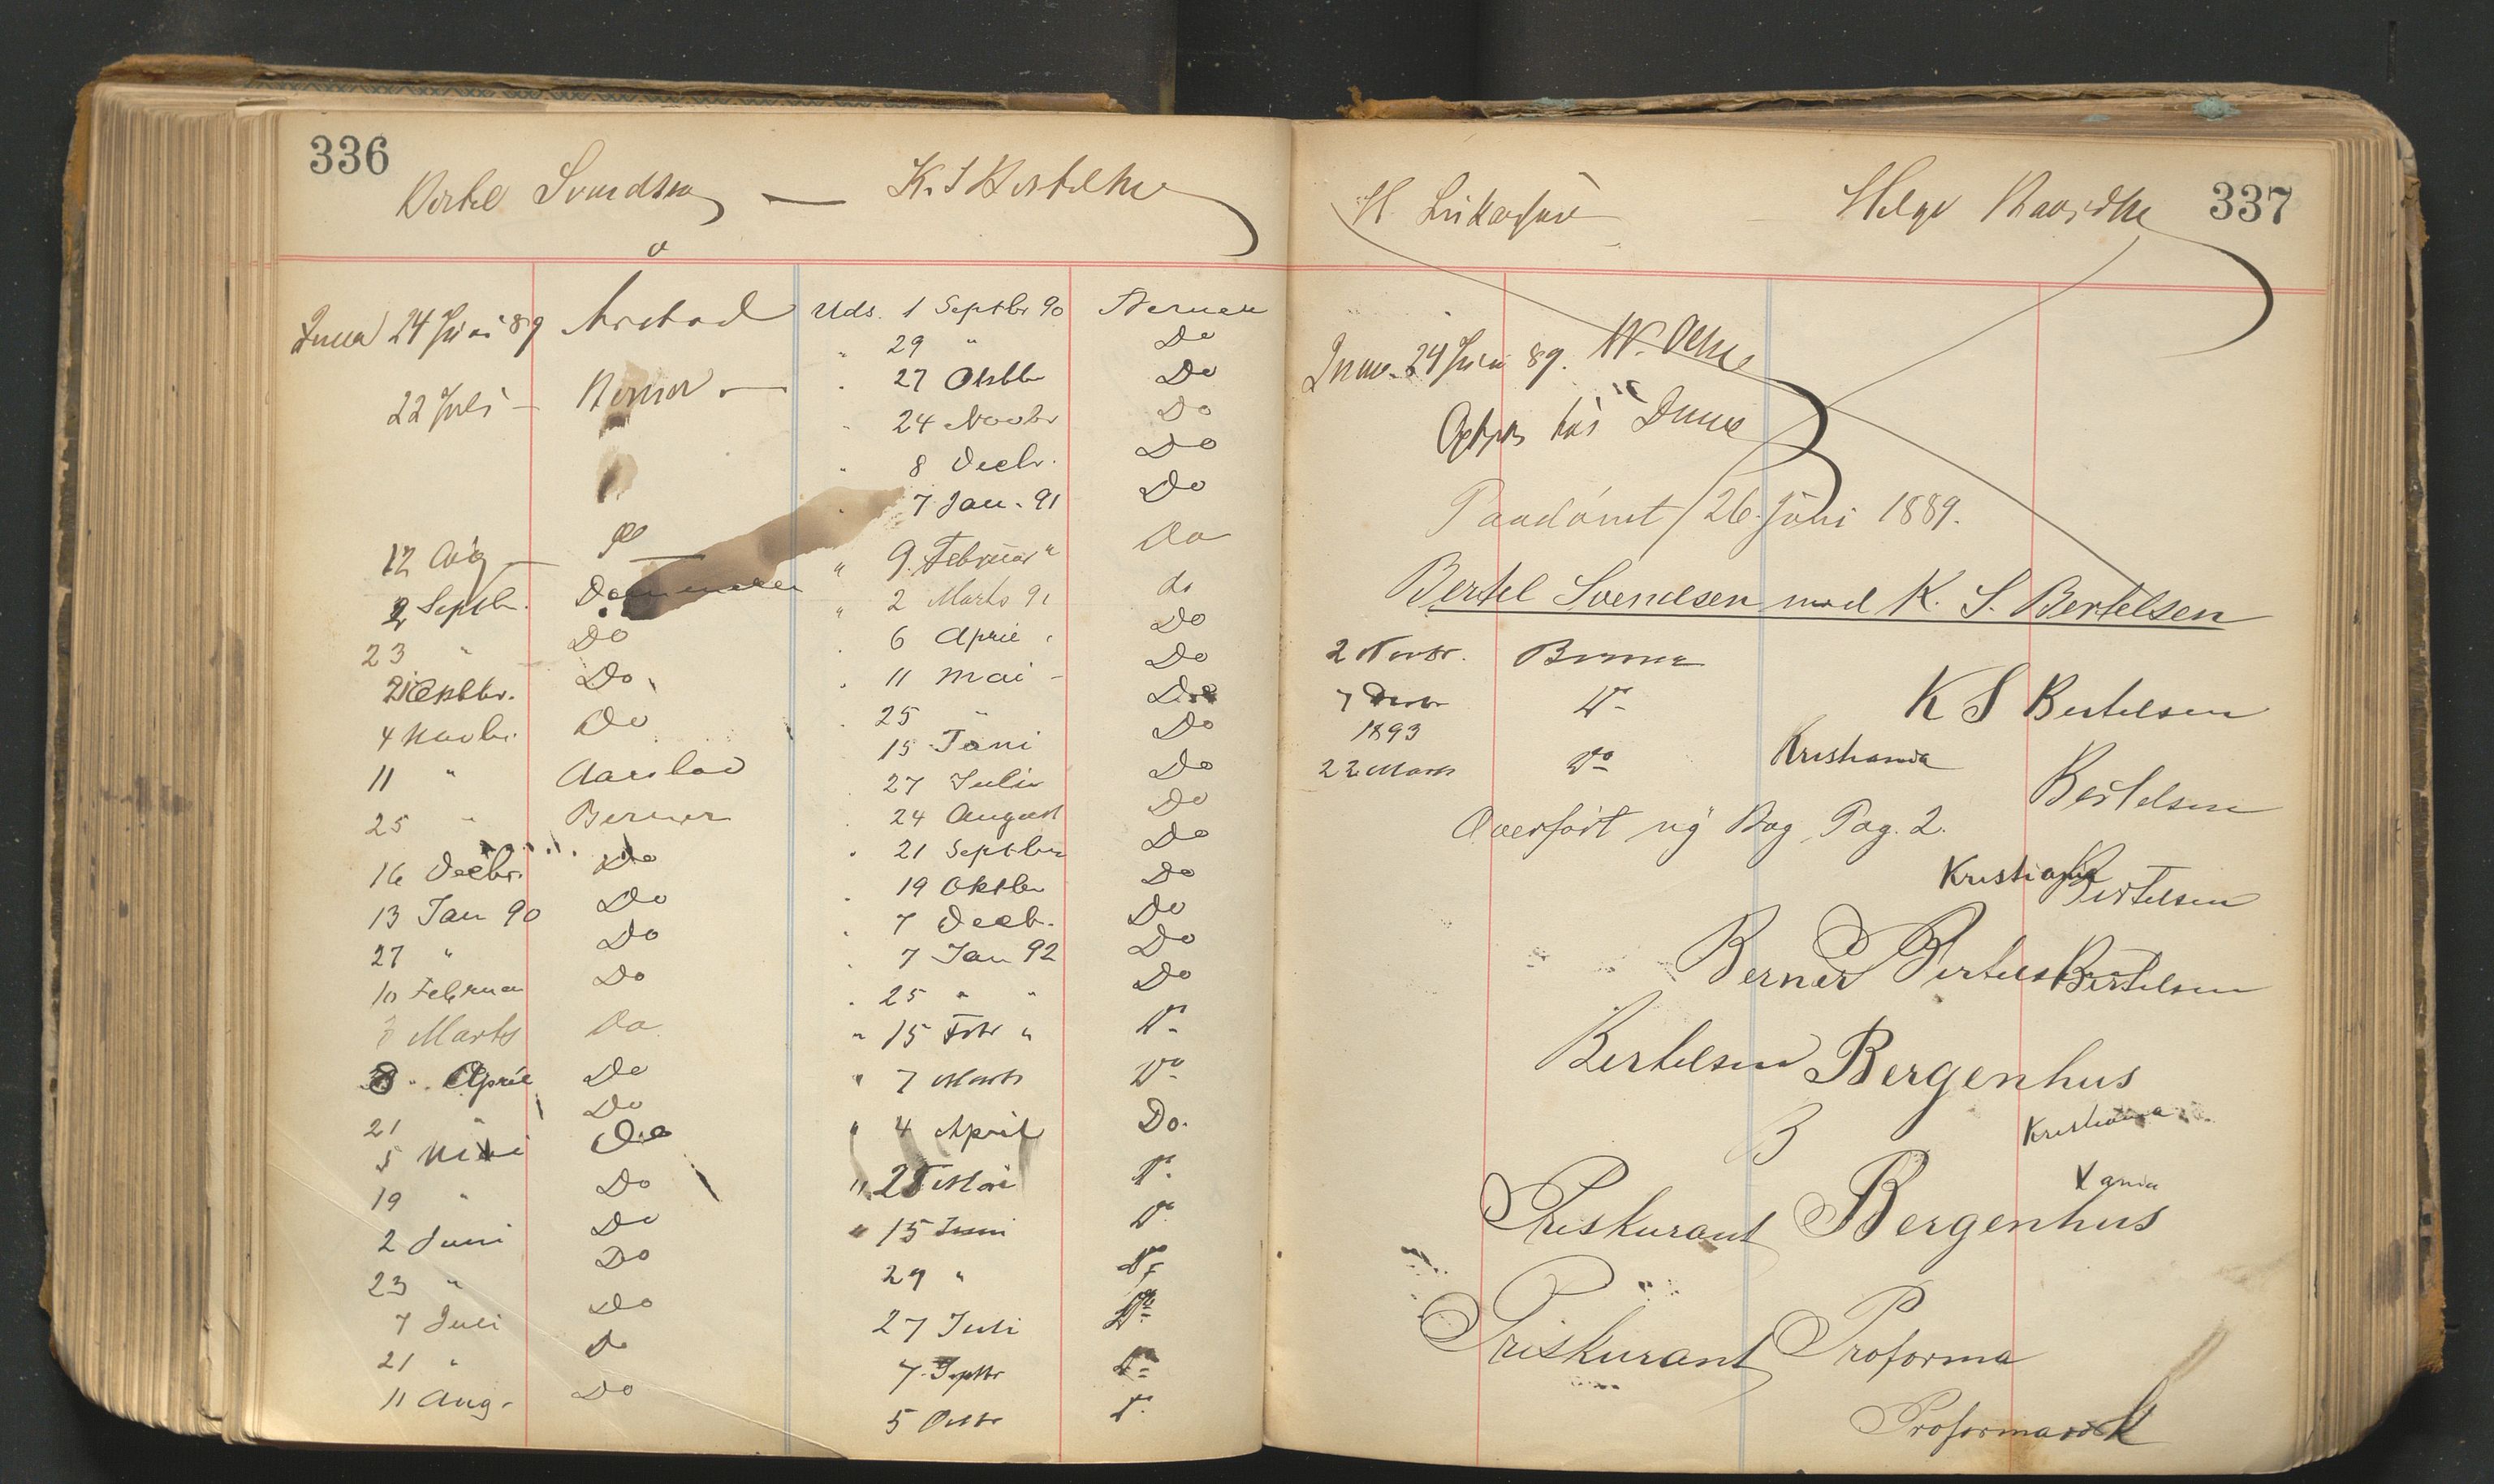 336
Bertel Svendsen — K. S Bertelsen
Inca 24 Juni 89 Årstad
22 Juli — Berner —
12 Aug — Do
2 Septbr. Dommeren
23 " Do
21 Oktbr. Do
4 Novbr. Do
11 " Aarstad
25 " Berner
16 Decbr. Do
13 Jan 90 Do
27 " Do
10 Februar Do
3 Marts Do
8 April Do
21 " Do
5 Mai Do
19 " Do
2 Juni Do
23 " Do
7 Juli Do
21 " Do
11 Aug. Do
Uds. 1 Septbr 90 Berner
29 " Do
27 Oktbr Do
24 Novbr Do
8 Decbr. Do
7 Jan. 91 Do
" 9 Februar " Do
" 2 Marts 91 do
6 April " Do
11 Mai - Do
25 " Do
15 Juni Do
27 Julie Do
24 August Do
21 Septbr Do
19 Oktbr Do
7 Decb. Do
7 Jan 92 Do
25 " " Do
" 15 Febr " Do
" 7 Marts Do
" 4 April Do.
" 25 Mai Do
" 15 Juni Do
29 " Do
27 Juli Do
7 Septbr Do
5 Octbr Do
337
H. Lukasen — Helge
24 Juni 89.
Paadömt 26 Juni 1889.
Bertel Svendsen mod K. S. Bertelsen
2 Novbr. Berner
K S Bertelsen
7 Decbr Do
1893
22 Marts Do
Kristiania
Bertelsen
Overført ny Bog Pag. 2.
Kristiania
Bertelsen
Berner Bertelsen Bertelsen
Bertelsen Bergenhus
B
Kristiania
Kania
Priskurant Bergenhus
Priskurant Proforma
Proforma